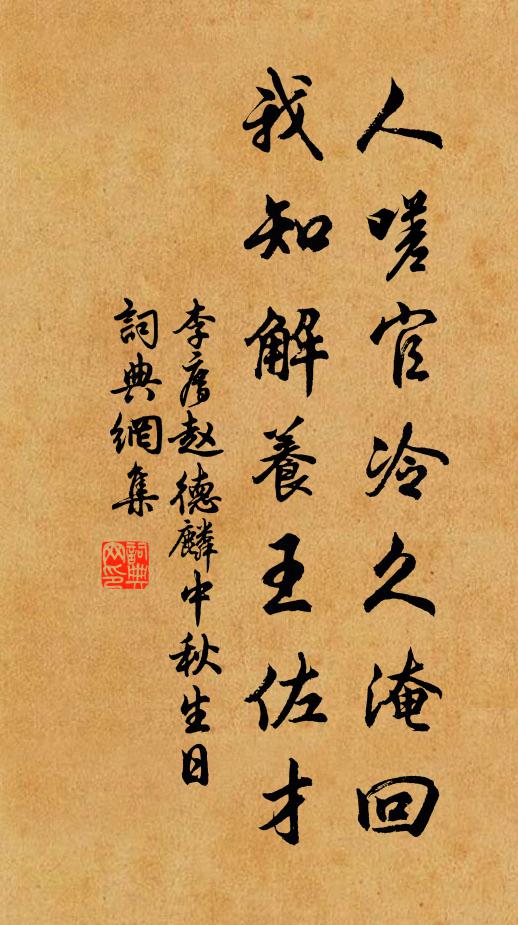 人嗟官冷久淹回
我知解養王佐才
李廌赵德麟中秋生日
詞典網集
詞典網印